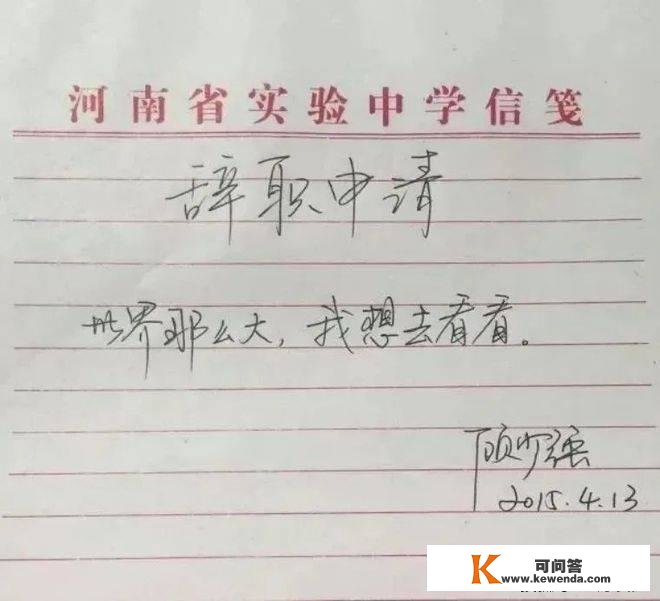 河南省实验中学信笺
辞职申请
世界那么大，我想去看看。
顾少强
2015.4.13
K 可问答
www.kewenda.com